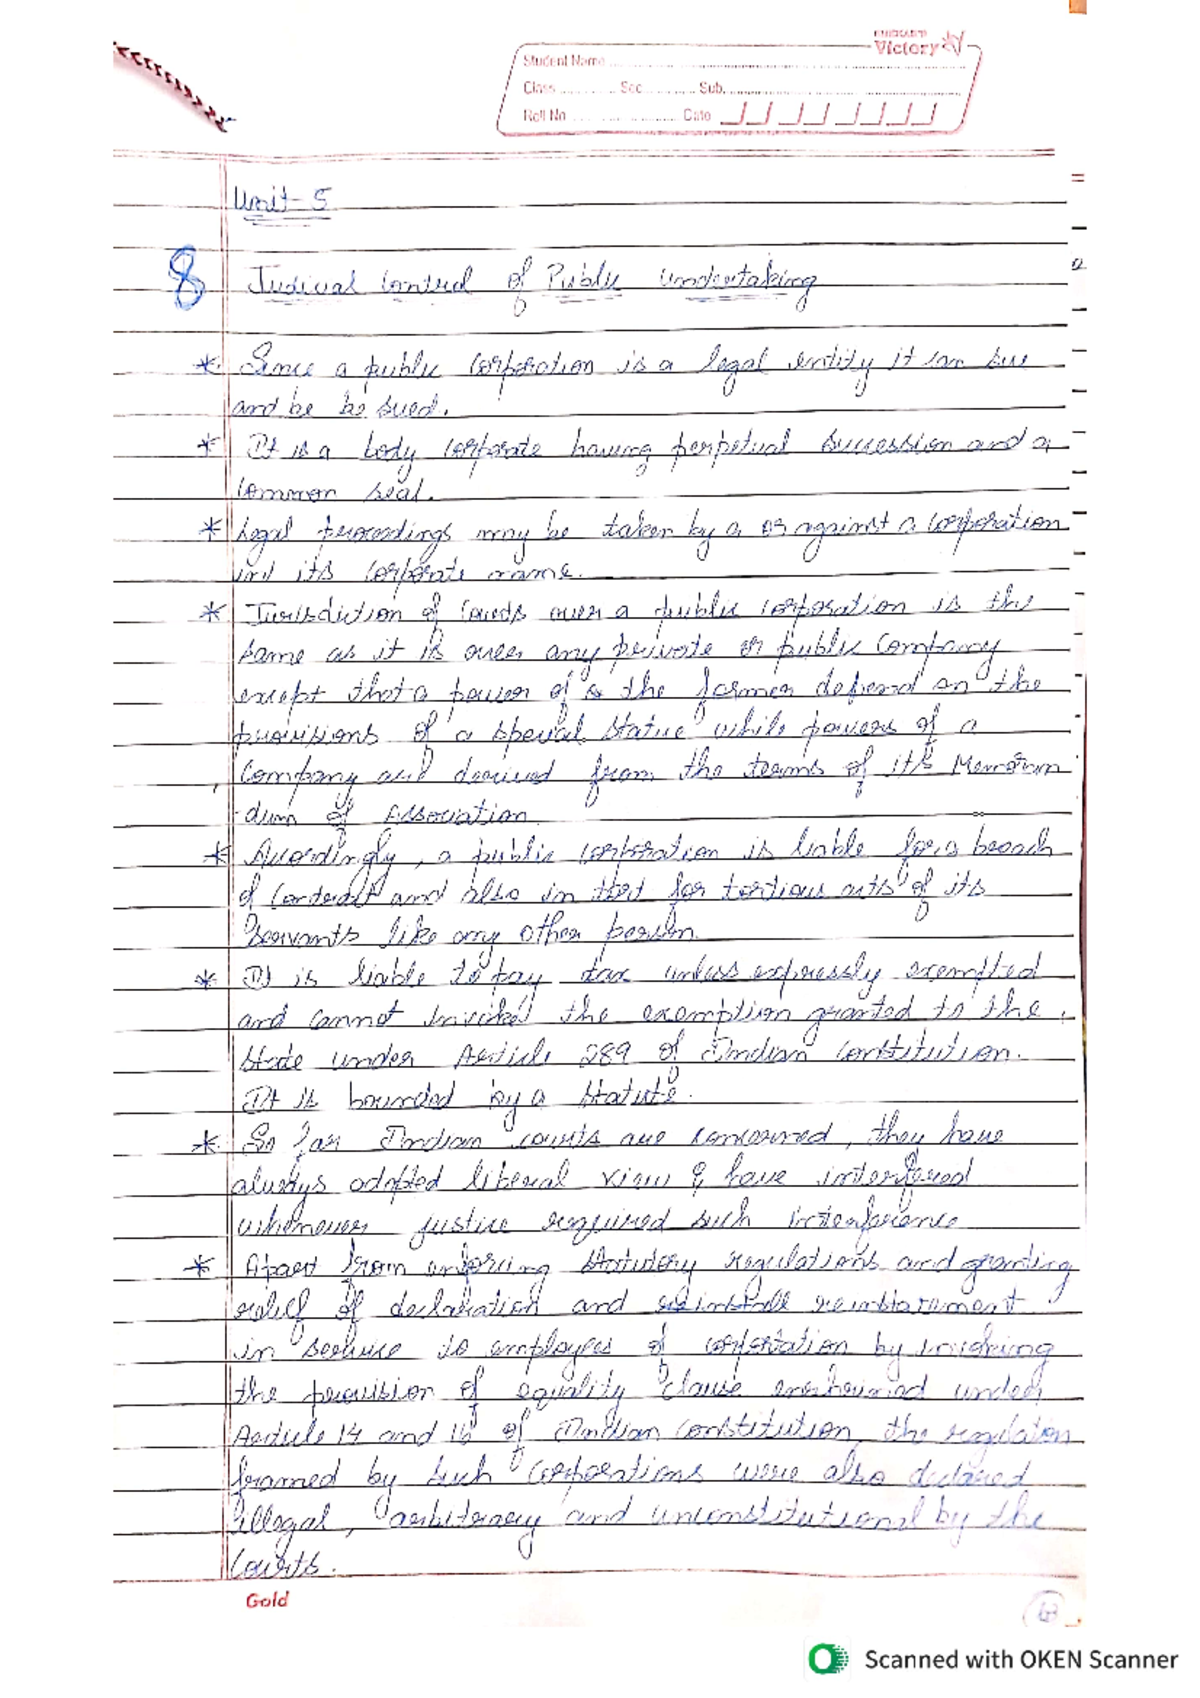 Victory
Student Name
Class Sec Sub.
Roll No Date
Unit-5
8 Judicial Control of Public undertaking
* Since a public corporation is a legal entity it can sue
and be be sued.
* It is a body corporate having perpetual succession and a
common seal.
* Legal proceedings may be taken by a or against a corporation
in its corporate name.
* Jurisdiction of Courts over a public corporation is the
same as it is over any private or public Company
except that a power of the former depend on the
provisions of a special statue while powers of a
Company and derived from the terms of its Memoran
dum of Association.
* Accordingly, a public corporation is liable for a breach
of Contract and also in tort for tortious acts of its
Servants like any other person.
* It is liable to pay tax unless expressly exempted
and cannot invoked the exemption granted to the
State under Article 289 of Indian Constitution.
It is bounded by a Statute.
* So far Indian courts are concerned, they have
always adopted liberal view & have interfered
whenever justice required such interference
* Apart from enforcing statutory regulations and granting
relief of declaration and reinstatement
in service to employees of corporation by invoking
the provision of equality clause enshrined under
Article 14 and 16 of Indian Constitution, the regulation
framed by such corporations were also declared
illegal, arbitrary and unconstitutional by the
Courts.
Gold
Scanned with OKEN Scanner